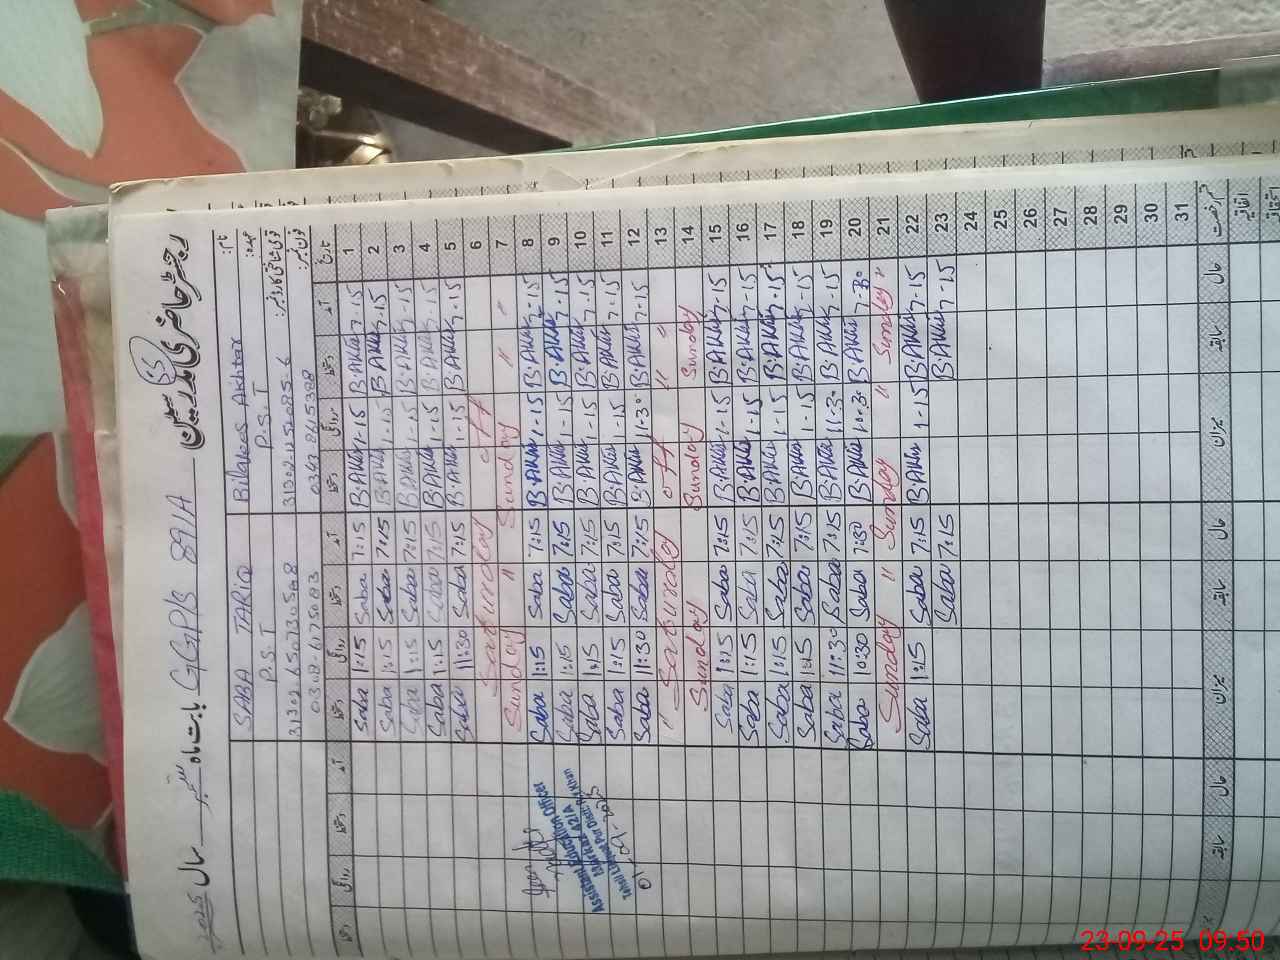 رجسٹر حاضری مدرسین بابت ماہ ستمبر سال 2025
GGP/S 89/A
نام:
Bilqees Akhtar
SABA TARIQ
عہدہ:
P.S.T
P.S.T
قومی شناختی کارڈ نمبر:
فون نمبر:
0308-6175083
تاریخ آمد دستخط روانگی دستخط آمد دستخط روانگی دستخط آمد دستخط روانگی دستخط
1 7-15 B.AKhtr 1-15 B.AKhtr 7:15 Saba 1:15 Saba
2 7-15 B.AKhtr 1-15 B.AKhtr 7:15 Saba 1:15 Saba
3 7-15 B.AKhtr 1-15 B.AKhtr 7:15 Saba 1:15 Saba
4 7-15 B.AKhtr 1-15 B.AKhtr 7:15 Saba 1:15 Saba
5 7-15 B.AKhtr 1-15 B.AKhtr 7:15 Saba 11:30 Saba
6 off Saturday
7 " " Sunday " Sunday
8 7-15 B.AKhtr 1-15 B.AKhtr 7:15 Saba 1:15 Saba
9 7-15 B.AKhtr 1-15 B.AKhtr 7:15 Saba 1:15 Saba
10 7-15 B.AKhtr 1-15 B.AKhtr 7:15 Saba 1:15 Saba
11 7-15 B.AKhtr 1-15 B.AKhtr 7:15 Saba 1:15 Saba
12 7-15 B.AKhtr 11-30 B.AKhtr 7:15 Saba 11:30 Saba
13 " " off Saturday
14 Sunday Sunday Sunday
15 7-15 B.AKhtr 1-15 B.AKhtr 7:15 Saba 1:15 Saba
16 7-15 B.AKhtr 1-15 B.AKhtr 7:15 Saba 1:15 Saba
17 7-15 B.AKhtr 1-15 B.AKhtr 7:15 Saba 1:15 Saba
18 7-15 B.AKhtr 1-15 B.AKhtr 7:15 Saba 1:15 Saba
19 7-15 B.AKhtr 11-30 B.AKhtr 7:15 Saba 11:30 Saba
20 7-30 B.AKhtr 10-30 B.AKhtr 7:30 Saba 10:30 Saba
21 " Sunday " Sunday " Sunday
22 7-15 B.AKhtr 1-15 B.AKhtr 7:15 Saba 1:15 Saba
23 7-15 B.AKhtr 7:15 Saba
24
25
26
27
28
29
30
31
حال سابقہ میزان حال سابقہ میزان حال سابقہ
اتفاقیہ
Assistant Education Officer
Markaz 42/A
Tehsil Liaquat Pur Distt. R.Y.Khan
01-09-2025
23-09-25 09:50